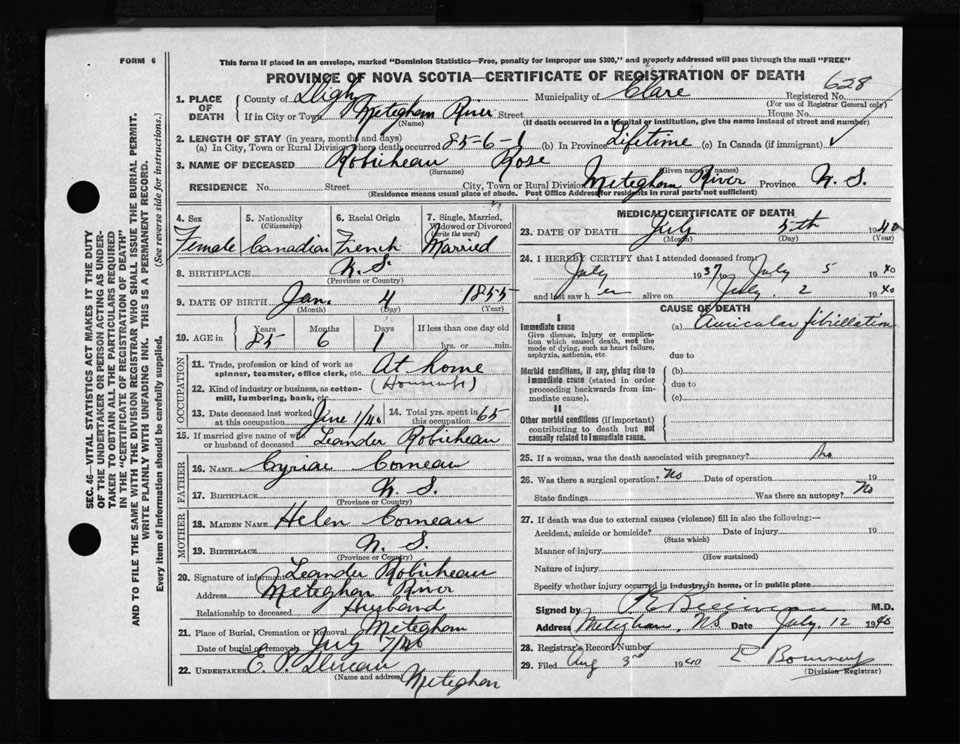 FORM 6
This form if placed in an envelope, marked "Dominion Statistics—Free, penalty for improper use $300," and properly addressed will pass through the mail "FREE"
PROVINCE OF NOVA SCOTIA—CERTIFICATE OF REGISTRATION OF DEATH
628
1. PLACE OF DEATH County of Digby Municipality of Clare Registered No.
(For use of Registrar General only)
If in City or Town Meteghan River Street House No.
(Name) (If death occurred in a hospital or institution, give the name instead of street and number)
2. LENGTH OF STAY (in years, months and days)
(a) In City, Town or Rural Division where death occurred 85-6-1 (b) In Province Lifetime (c) In Canada (if immigrant) ✓
3. NAME OF DECEASED Robicheau Rose
(Surname) (Given names)
RESIDENCE No. Street City, Town or Rural Division Meteghan River Province N. S.
(Residence means usual place of abode. Post Office Address for residents in rural parts not sufficient)
SEC. 46—VITAL STATISTICS ACT MAKES IT THE DUTY
OF THE UNDERTAKER OR PERSON ACTING AS UNDER-
TAKER TO OBTAIN ALL THE PARTICULARS REQUIRED
IN THE "CERTIFICATE OF REGISTRATION OF DEATH"
AND TO FILE THE SAME WITH THE DIVISION REGISTRAR WHO SHALL ISSUE THE BURIAL PERMIT.
WRITE PLAINLY WITH UNFADING INK. THIS IS A PERMANENT RECORD.
Every item of information should be carefully supplied. (See reverse side for instructions.)
4. Sex 5. Nationality (Citizenship) 6. Racial Origin 7. Single, Married, Widowed or Divorced (Write the word)
Female Canadian French Married
8. BIRTHPLACE N. S.
(Province or Country)
9. DATE OF BIRTH Jan. 4 1855
(Month) (Day) (Year)
10. AGE in Years Months Days If less than one day old
85 6 1 hrs. or min.
OCCUPATION
11. Trade, profession or kind of work as spinner, teamster, office clerk, etc. At home
12. Kind of industry or business, as cotton-mill, lumbering, bank, etc. (Housewife)
13. Date deceased last worked at this occupation June 1/40 14. Total yrs. spent in this occupation 65
15. If married give name of wife or husband of deceased Leander Robicheau
FATHER
16. NAME Cyriac Comeau
17. BIRTHPLACE N. S.
(Province or Country)
MOTHER
18. MAIDEN NAME Helen Comeau
19. BIRTHPLACE N. S.
(Province or Country)
20. Signature of informant Leander Robicheau
Address Meteghan River
Relationship to deceased Husband
21. Place of Burial, Cremation or Removal Meteghan
Date of burial or removal July 7/40
22. UNDERTAKER E. P.
(Name and address) Meteghan
MEDICAL CERTIFICATE OF DEATH
23. DATE OF DEATH July 5th 1940
(Month) (Day) (Year)
24. I HEREBY CERTIFY that I attended deceased from
July 1937 to July 5 1940
and last saw h er alive on July 2 1940
CAUSE OF DEATH
I
Immediate cause (a) Auricular fibrillation
Give disease, injury or complica-
tion which caused death, not the
mode of dying, such as heart failure,
asphyxia, asthenia, etc. due to
Morbid conditions, if any, giving rise to (b)
immediate cause (stated in order due to
proceeding backwards from im-
mediate cause). (c)
II
Other morbid conditions (if important)
contributing to death but not
causally related to immediate cause.
25. If a woman, was the death associated with pregnancy? No
26. Was there a surgical operation? No Date of operation 19
State findings Was there an autopsy? No
27. If death was due to external causes (violence) fill in also the following:—
Accident, suicide or homicide? Date of injury 19
(State which)
Manner of injury
(How sustained)
Nature of injury
Specify whether injury occurred in industry, in home, or in public place
Signed by P. E. M.D.
Address Meteghan, NS Date July, 12 1940
28. Registrar's Record Number
29. Filed Aug 3rd 1940
(Division Registrar)